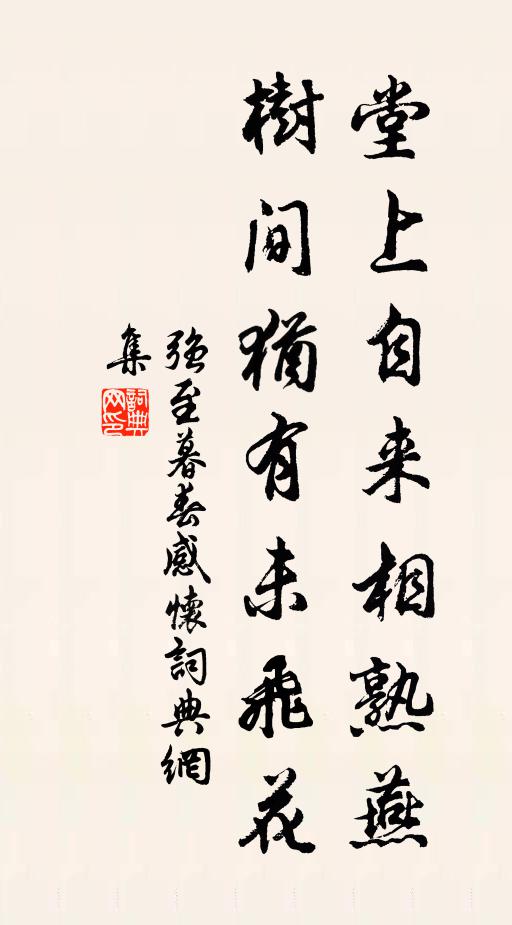 堂上自来相熟燕
樹间猶有未飛花
强至暮春感懷詞典網
集
詞典网印